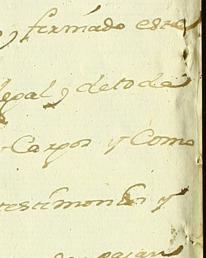 y firmado este
legal, y de to da
Cargos y Como
testimonio y